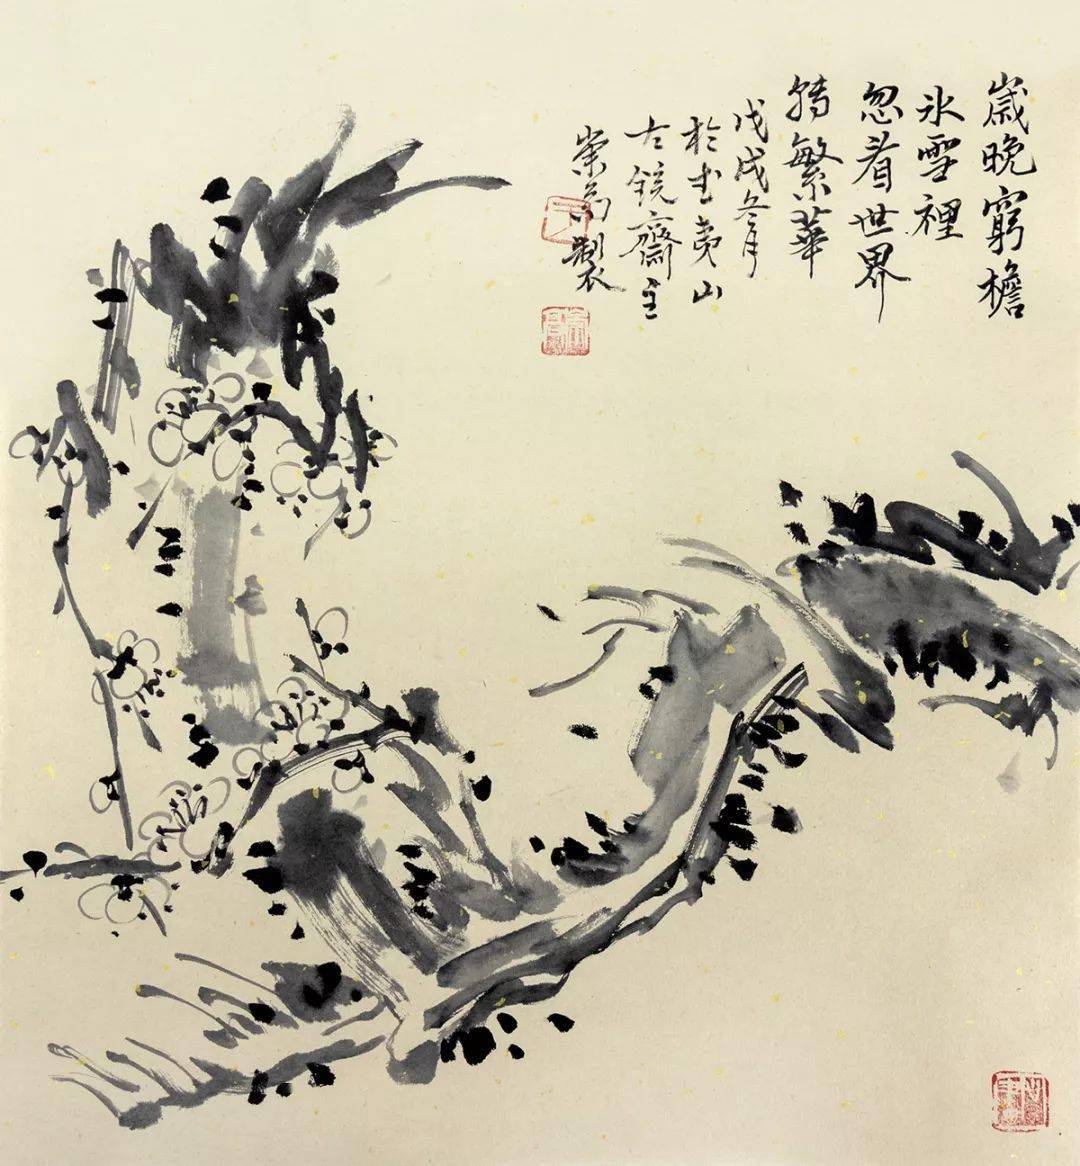 歲晚窮檐
氷雪裡
忽看世界
轉繁華
戊戌冬月
於武夷山
古鏡齋主
崇製